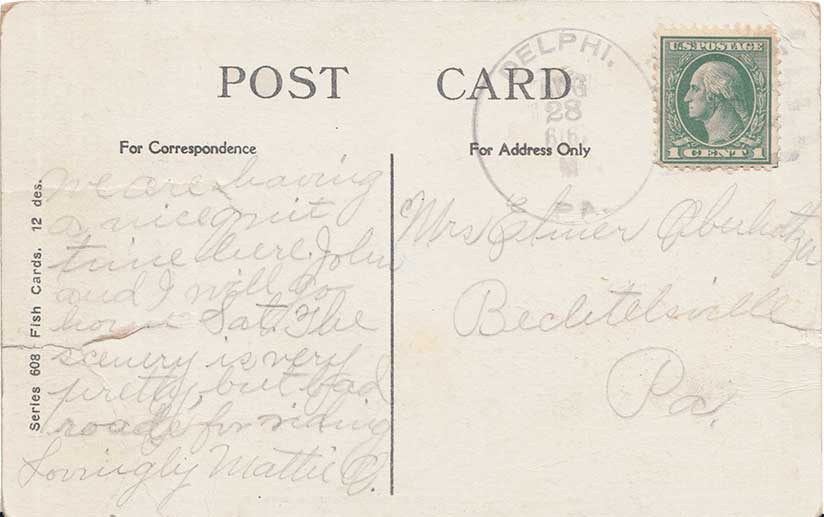 POST CARD
DELPHI.
AUG
28
PA.
U.S. POSTAGE
1 CENT 1
For Correspondence
For Address Only
Series 608 Fish Cards. 12 des.
We are having
a nice quit
time here. John
and I will go
home Sat. The
scenery is very
pretty, but bad
roads for riding
Lovingly Mattie O.
Mrs Elmer Oberholtzer
Bechtelsville
Pa.